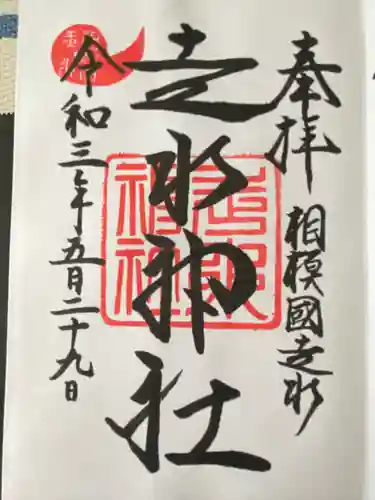 奉拝
相模國走水
走水神社
令和三年五月二十九日
走水神社